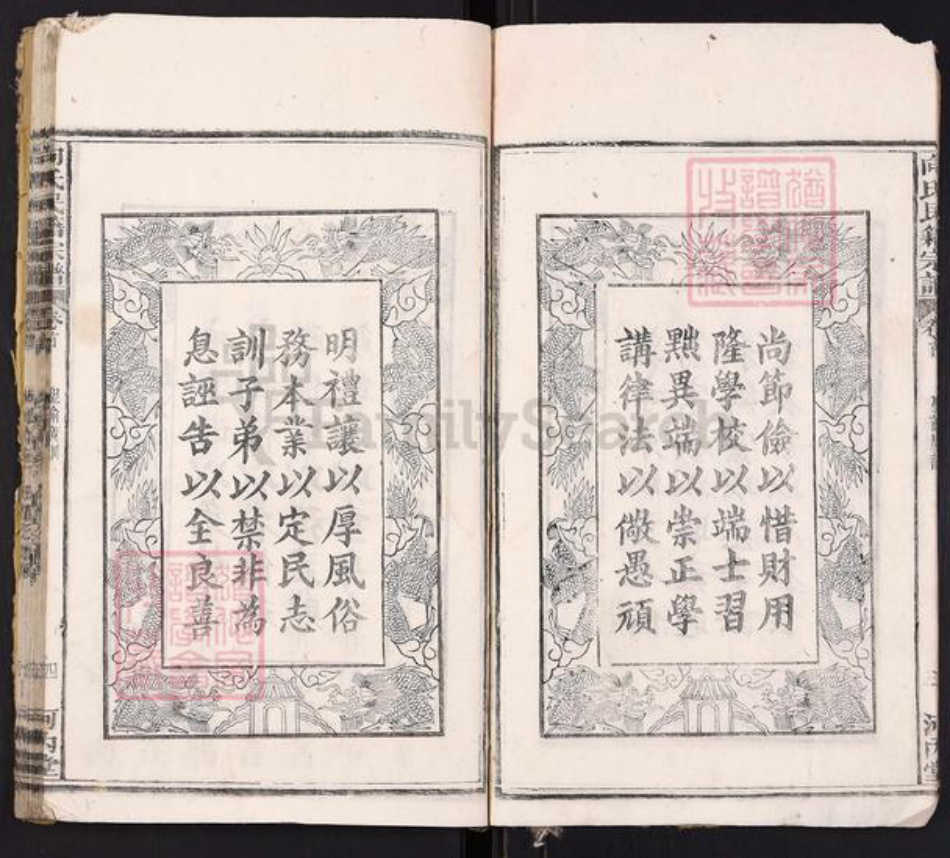 尚節儉以惜財用
隆學校以端士習
黜異端以崇正學
講律法以儆愚頑
明禮讓以厚風俗
務本業以定民志
訓子弟以禁非為
息誣告以全良善
向氏民籍宗譜
河內堂
FamilySearch